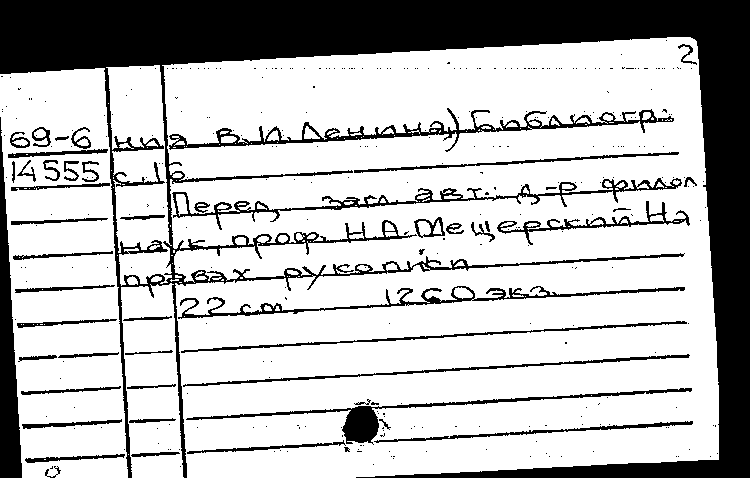 2
69-6 ния В.И.Ленина) Библиогр.:
14555 с.16
Перед загл. авт.: д-р филол.
наук, проф. Н.А.Мещерский На
правах рукописи
22 см. 1260 экз.